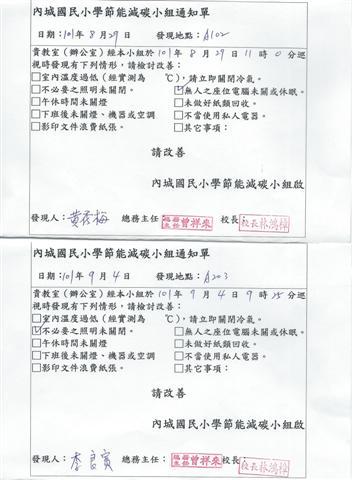 內城國民小學節能減碳小組通知單
日期:101年8月29日 發現地點:A102
貴教室(辦公室)經本小組於101年8月29日11時0分巡
視時發現有下列情形,請檢討改善:
□室內溫度過低(經實測為 ℃),請立即關閉冷氣。
□不必要之照明未關閉。 ☑無人之座位電腦未關或休眠。
□午休時間未關燈 □未做好紙類回收。
□下班後未關燈、機器或空調 □不當使用私人電器。
□影印文件浪費紙張。 □其它事項:
請改善
內城國民小學節能減碳小組啟
發現人:黃春梅 總務主任 總務主任曾祥來 校長: 校長林鴻樟
內城國民小學節能減碳小組通知單
日期:101年9月4日 發現地點:A203
貴教室(辦公室)經本小組於101年9月4日9時25分巡
視時發現有下列情形,請檢討改善:
□室內溫度過低(經實測為 ℃),請立即關閉冷氣。
☑不必要之照明未關閉。 □無人之座位電腦未關或休眠。
□午休時間未關燈 □未做好紙類回收。
□下班後未關燈、機器或空調 □不當使用私人電器。
□影印文件浪費紙張。 □其它事項:
請改善
內城國民小學節能減碳小組啟
發現人:李 總務主任: 總務主任曾祥來 校長: 校長林鴻樟